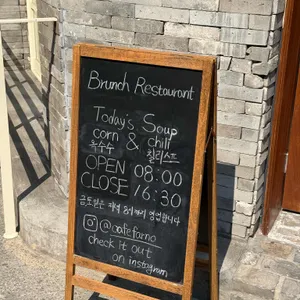 Brunch Restaurant
Today's Soup
corn & chili
옥수수 칠리스프
OPEN 08:00
CLOSE 16:30
@oatefarno
check it out
on instagram